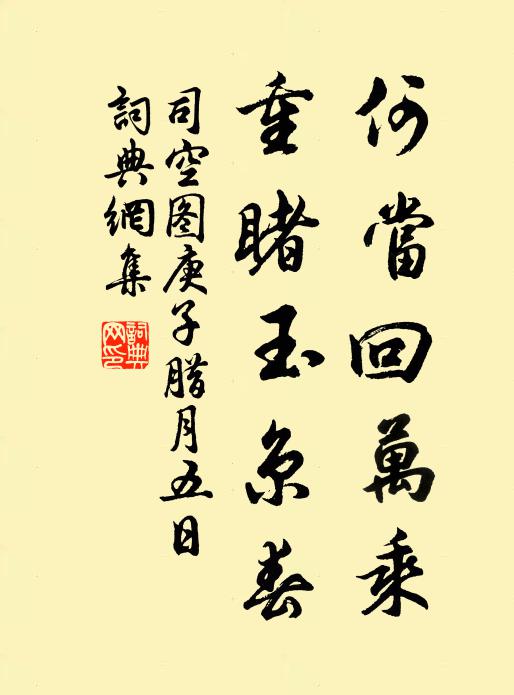 何當回萬乘
重睹玉京春
司空图庚子腊月五日
詞典網集
詞典網印